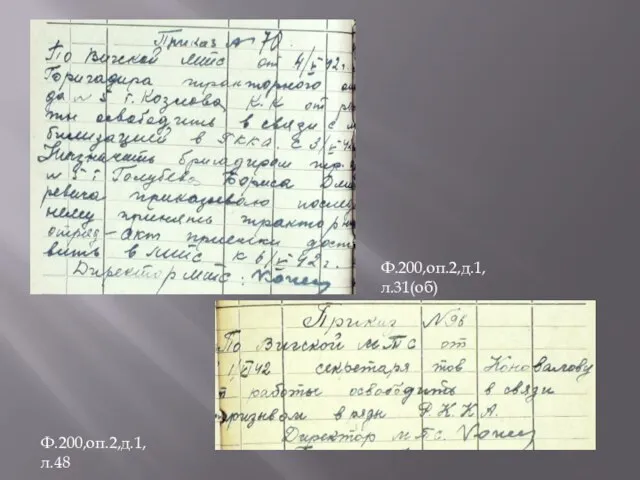 Приказ № 70.
По Вичской мтс от 4/VI 42 г.
Бригадира тракторного
да № 5 т. Козлова К.К от
ты освободить в связи с м
билизацией в РККА. с 3/VI 42
Назначить бригадиром тр.
№ 5 т Голубева Бориса
ревича приказываю после
нему принять трактор
отряд - Акт приемки доста
вить в мтс к 6/VI 42 г.
Директор мтс:
Ф.200,оп.2,д.1,
л.31(об)
Приказ №96
По Вичской МТС от
1/VI 42 секретаря тов Коновалову
работы освободить в связи
призывом в ряды Р.К.К.А.
Директор мтс.
Ф.200,оп.2,д.1,
л.48